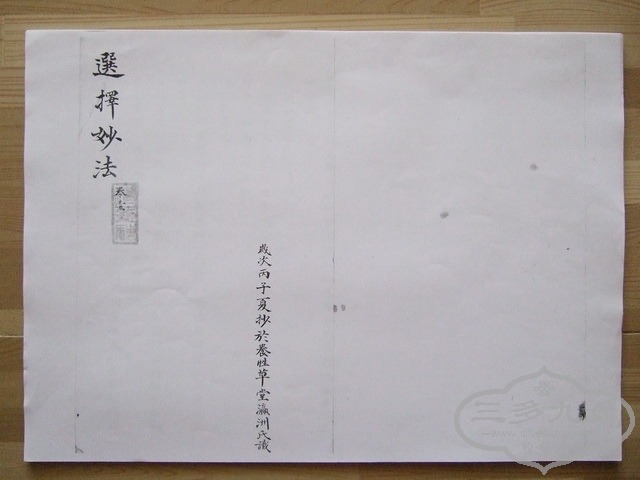 選擇妙法
歲次丙子夏抄於養性草堂瀛洲氏識
三多九